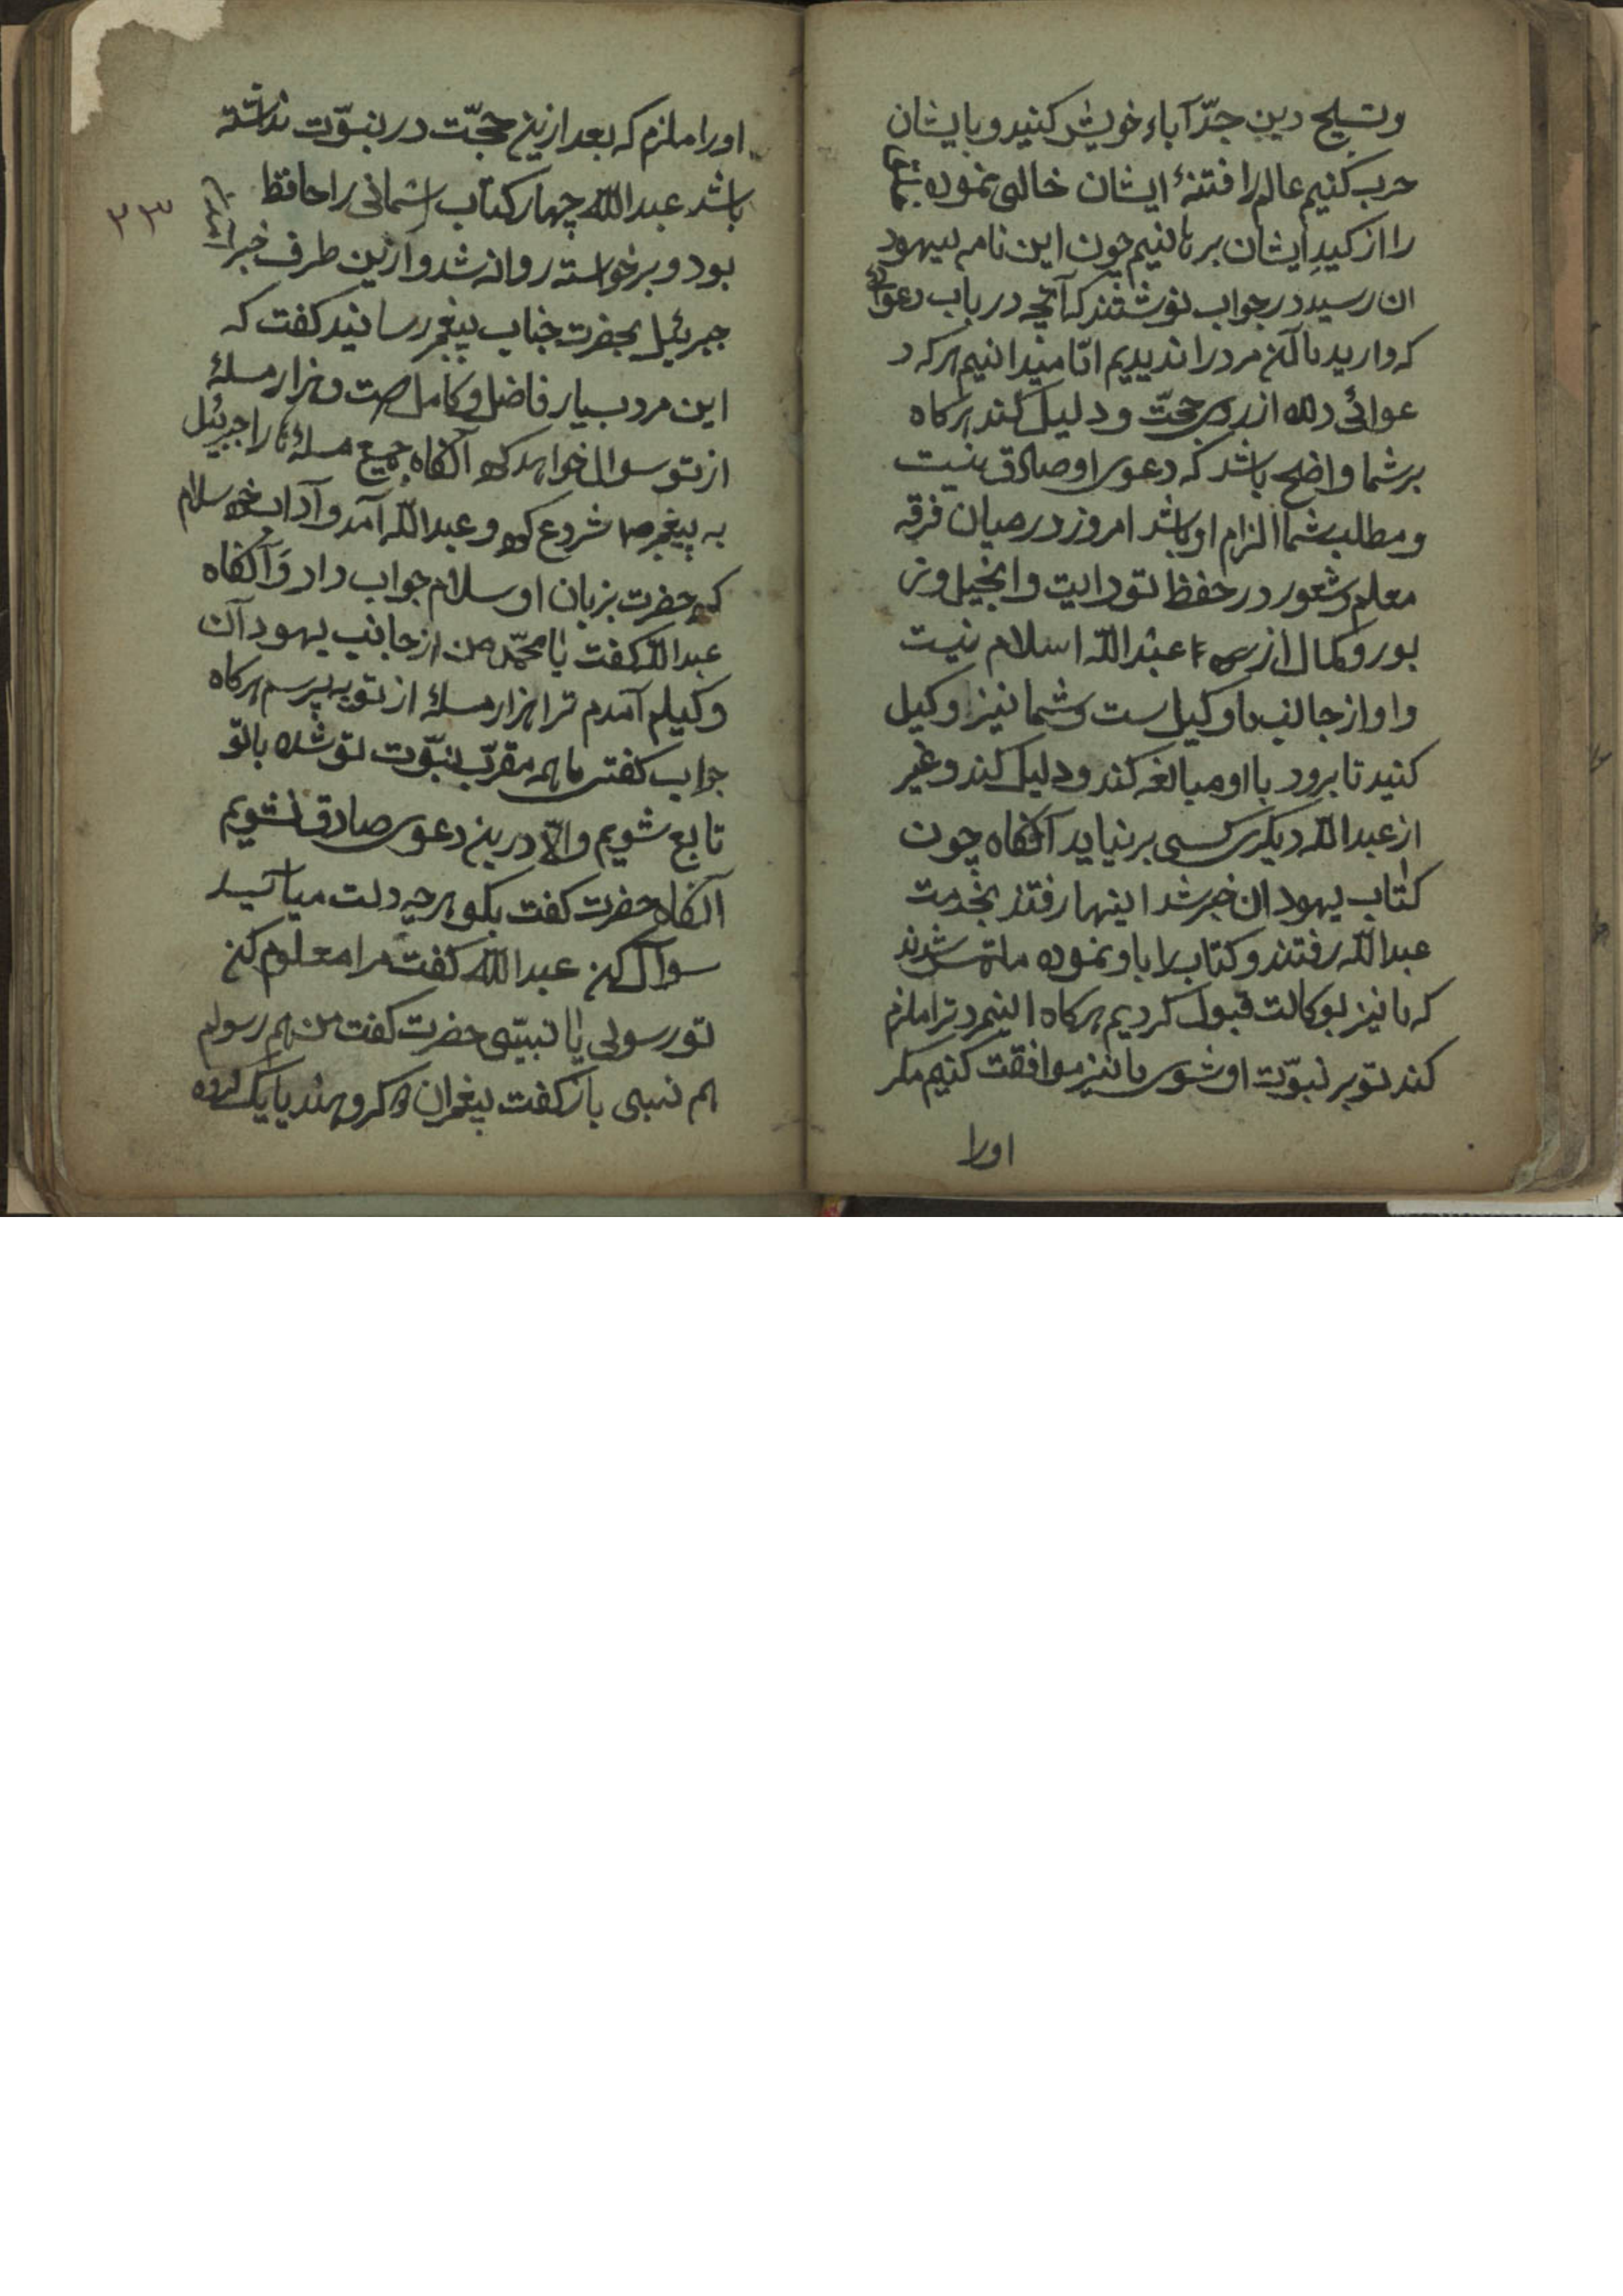 وتسلیح دین جدّ آباء خویش کنید و بایشان
حرب کنیم عالم را فتنهٔ ایشان خالی نموده شما
را از کیدِ ایشان برهانیم چون این نامه بیهود
ان رسید در جواب نوشتند که آنچه در باب دعوائ
که دارید ما آن مرد را ندیدیم امّا میدانیم هر که د
عوائی دارد از روی حجّت و دلیل کند هرکاه
بر شما واضح باشد که دعوی او صادق نیست
و مطلب شما الزام او باشد امروز در میان فرقه
معلم و شعور در حفظ تورایت و انجیل و ز
بور و کمال از عبدالله اسلام نیست
و او از جانب ما وکیل است و شما نیز وکیل
کنید تا برود با او مبالغه کند و دلیل کند و غیر
از عبدالله دیکری کسی بر نیاید آنکاه چون
کتاب یهودان خبر شد اینها رفتند بخدمت
عبدالله رفتند و کتاب را باو نموده ملتمس شدند
که ما نیز بوکالت قبول کردیم هرکاه اینمرد ترا ملزم
کند تو بر نبوّت او شوی ما نیز موافقت کنیم مکر
اورا
او را ملزم که بعد ازین حجّت در نبوّت نداشته
باشد عبدالله چهار کتاب اسمانی را حافظ
۲۳
بود و برخواسته روانه شد و ازین طرف خبر
جبرئیل بحضرت جناب پیغمبر رسانید کفت که
این مرد بسیار فاضل و کامل است و هزار مسلهٔ
از تو سوال خواهد کرد آنکاه جمیع مسلهٔ را جبرئیل
به پیغمبر شروع کرد و عبدالله آمد و آداب سلام
کرد حضرت بزبان او سلام جواب داد و آنکاه
عبدالله کفت یا محمّد من از جانب یهود آن
وکیلم آمدم ترا هزار مسلهٔ از تو به پرسم هرکاه
جواب کفتی ما همه مقرّب نبوّت تو شده باتو
تابع شویم والّا درین دعوی صادق نشویم
آنکاه حضرت کفت بکو هر چه دلت میاسید
سوال کن عبدالله کفت مرا معلوم کن
تو رسولی یا نبیّی حضرت کفت من هم رسولم
هم نبیی باز کفت پیغمبران دو کروهند یا یک کرده